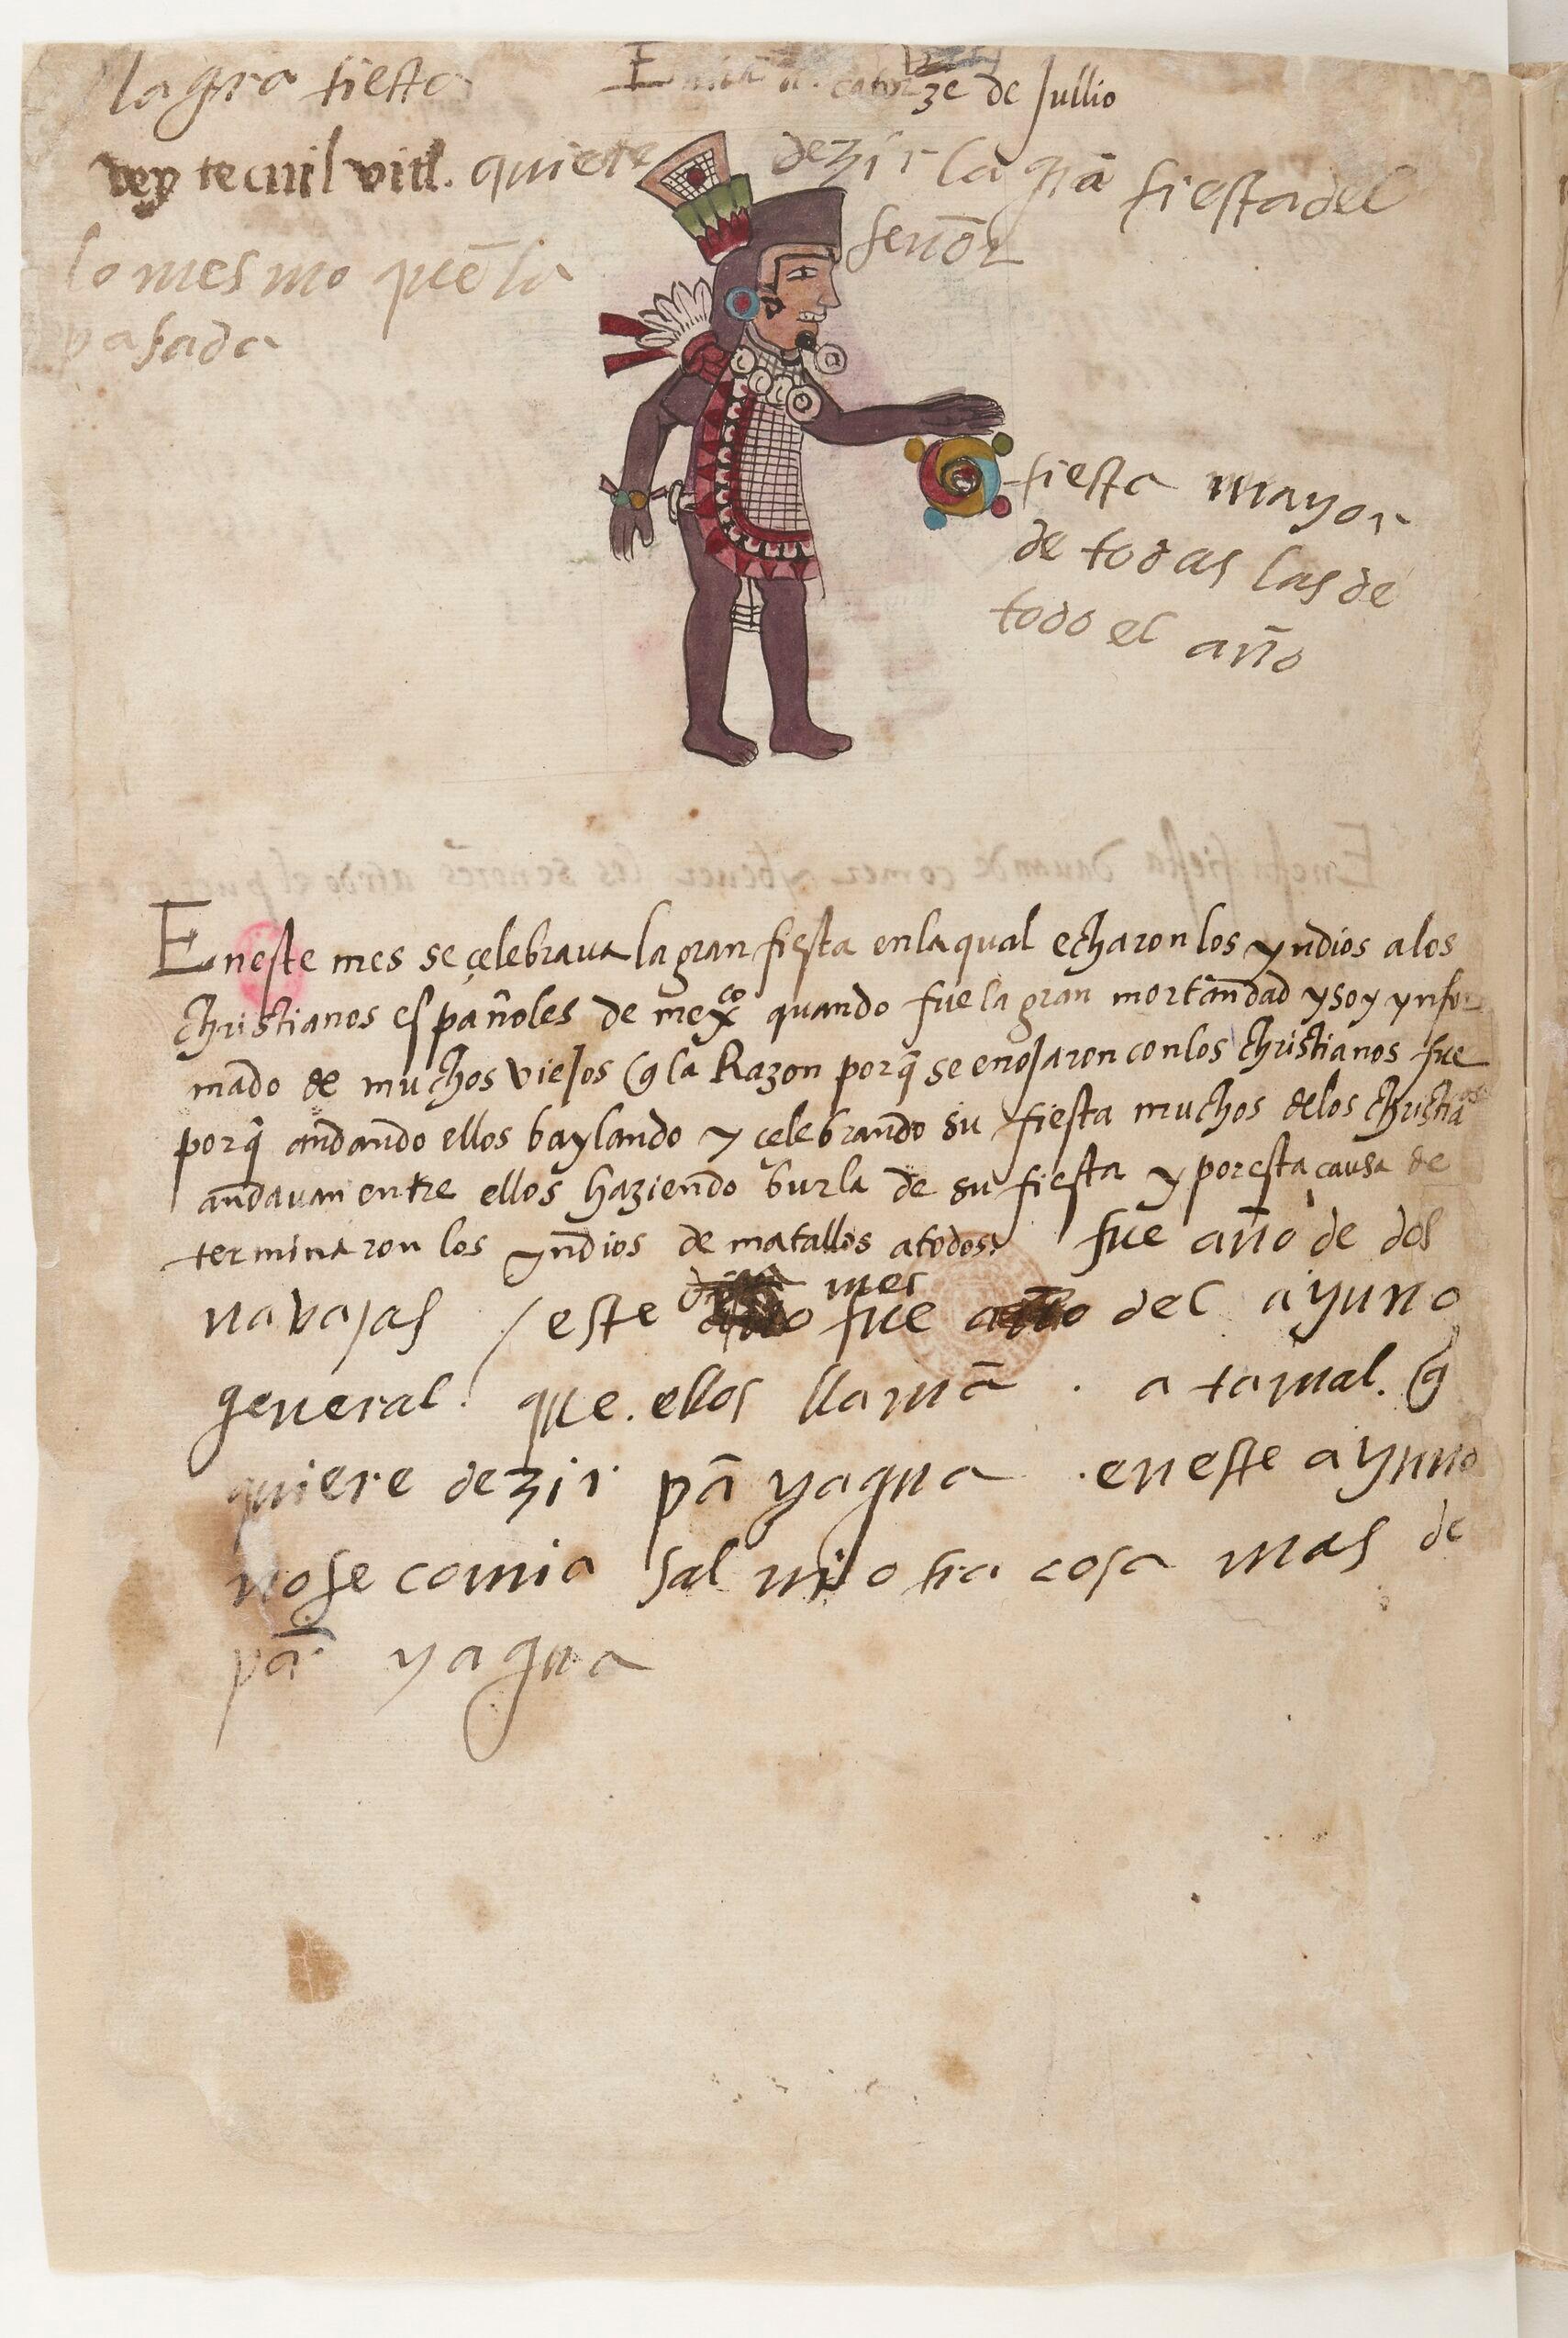 la gra fiesta
E catorze de Jullio
vey tecuil vitl. quiere dezir la grā fiesta del
señor
lo mesmo q̄ la
pasada
fiesta mayor
de todas las de
todo el año
Eneste mes se çelebraua la gran fiesta enla qual echaron los yndios alos
christianos españoles de mexco quando fue la gran mortandad y soy ynfor
mado de muchos viejos q̃ la Razon porq̃ se enojaron con los christianos fue
porq̃ andando ellos baylando y çelebrando su fiesta muchos delos christianos
andauan entre ellos haziendo burla de su fiesta y por esta causa de
terminaron los yndios de matallos atodos. fue año de dos
navajas / este mes fue del ayuno
general. que. ellos llamā . atamal. q̃
quiere dezir pā yagua . eneste ayuno
nose comia sal ni otra cosa mas de
pā yagua